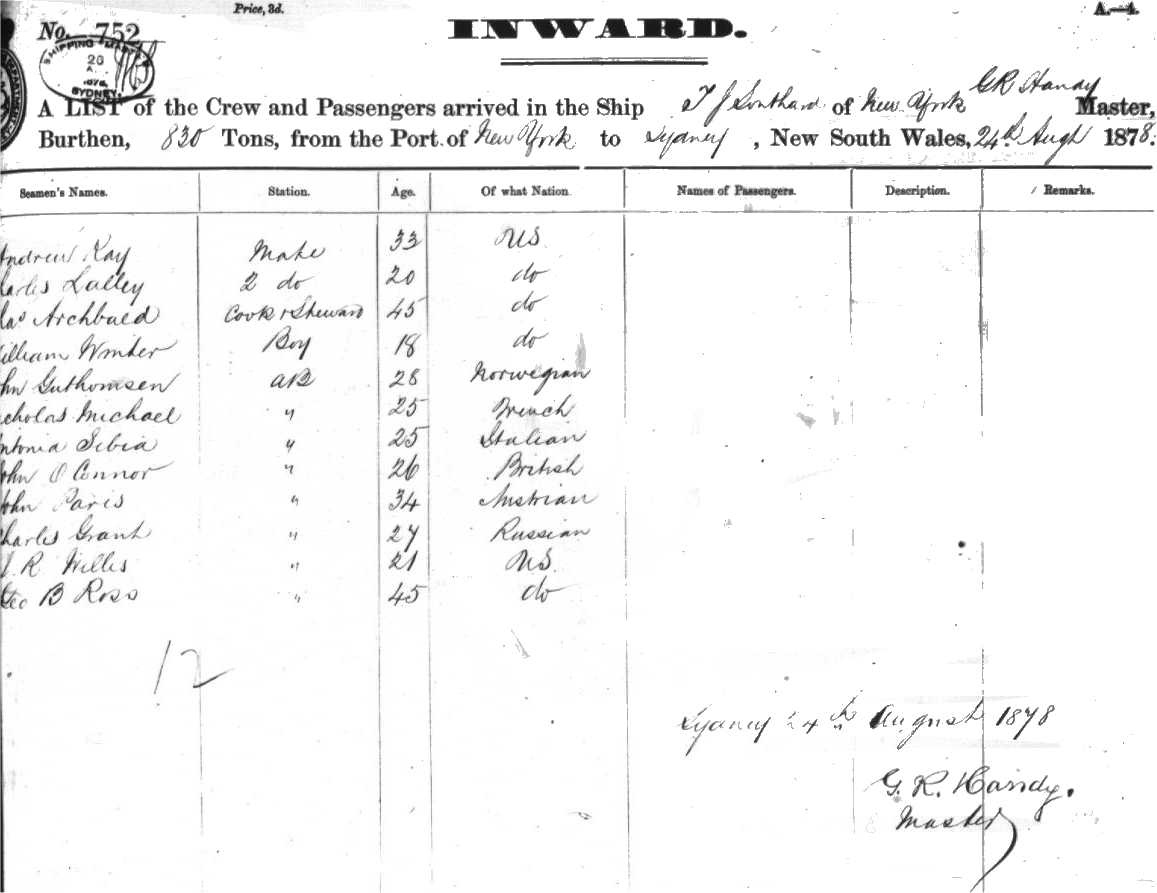 Price, 3d.
A.—4.
No. 752
INWARD.
SHIPPING MASTER
26
1878
SYDNEY
A LIST of the Crew and Passengers arrived in the Ship T J Southard of New York G R Handy Master,
Burthen, 830 Tons, from the Port of New York to Sydney, New South Wales, 24th Augt 1878.
Seamen's Names. Station. Age. Of what Nation Names of Passengers. Description. Remarks.
Andrew Kay Mate 33 US
harles Lalley 2 do 20 do
has Archbald Cook & Steward 45 do
illiam Winter Boy 18 do
ohn Guthomsen AB 28 Norwegian
icholas Michael " 25 French
ntonia Sebia " 25 Italian
John O Connor " 26 British
John Paris " 34 Austrian
harles Grant " 27 Russian
R Willis " 21 US
Geo B Ross " 45 do
12
Sydney 24th August 1878
G. R. Handy.
Master